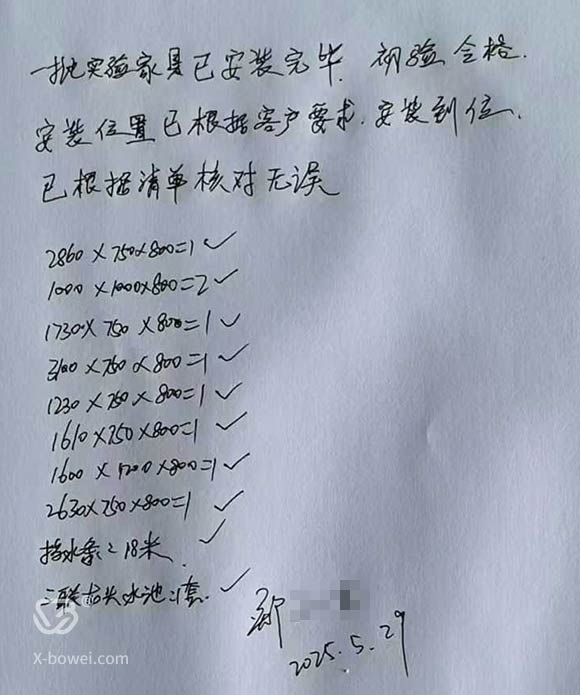 一批实验家具已安装完毕. 初验合格.
安装位置已根据客户要求. 安装到位.
已根据清单核对无误
2860×750×800=1 ✓
1000×1000×800=2 ✓
1730×750×800=1 ✓
3100×750×800=1 ✓
1230×750×800=1 ✓
1610×750×800=1 ✓
1600×1200×800=1 ✓
2630×750×800=1 ✓
挡水条:18米. ✓
三联龙头水池:1套. ✓
2025.5.29
X-bowei.com